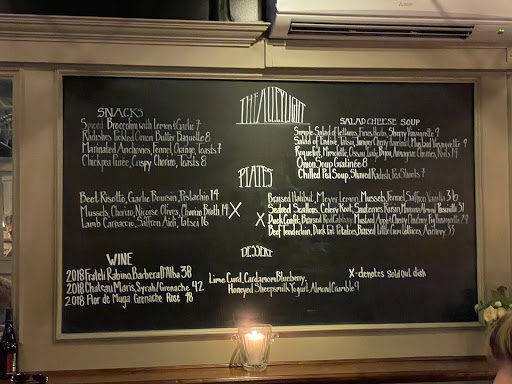 THE ALLEY LIGHT
SNACKS
Spiced Broccolini with Lemon & Garlic 7
Radishes, Pickled Onion Butter Baguette 8
Marinated Anchovies, Fennel, Orange, Toasts 7
Chickpea Purée, Crispy Chorizo, Toasts 8
SALAD CHEESE SOUP
Simple Salad of Lettuces, Fines Herbs, Sherry Vinaigrette 9
Salad of Endive, Tatsoi, Mustard Vinaigrette 9
Roquefort, Mimolette, Ossau Iraty, Cherries, Nuts 19
Onion Soup Gratinée 8
Chilled Pea Soup, Shaved Radish, Pea Shoots 7
PLATES
Beet Risotto, Garlic Boursin, Pistachio 14
Mussels, Chorizo, Nicoise Olives, Chorizo Broth 14 X
Lamb Carpaccio, Saffron Aioli, Tatsoi 16
Braised Halibut, Meyer Lemon, Mussels, Fennel, Saffron Vanilla 36
Seared Scallops, Celery Root, Sauternes Raisin, Almond 31
X Duck Confit, Braised Red Cabbage, Mustard, Apple Cherry Chutney, Vinaigrette 29
Beef Tenderloin, Duck Fat Potatoes, Braised 33
DESSERT
Lime Curd, Cardamom Blueberry,
Honeyed Sheepsmilk Yogurt, Almond Crumble 9
X-denotes sold out dish
WINE
2018 Frateli Rabino, Barbera D'Alba 38
2018 Chateau Maris, Syrah/Grenache 42
2018 Flor de Muga Grenache Rosé 48